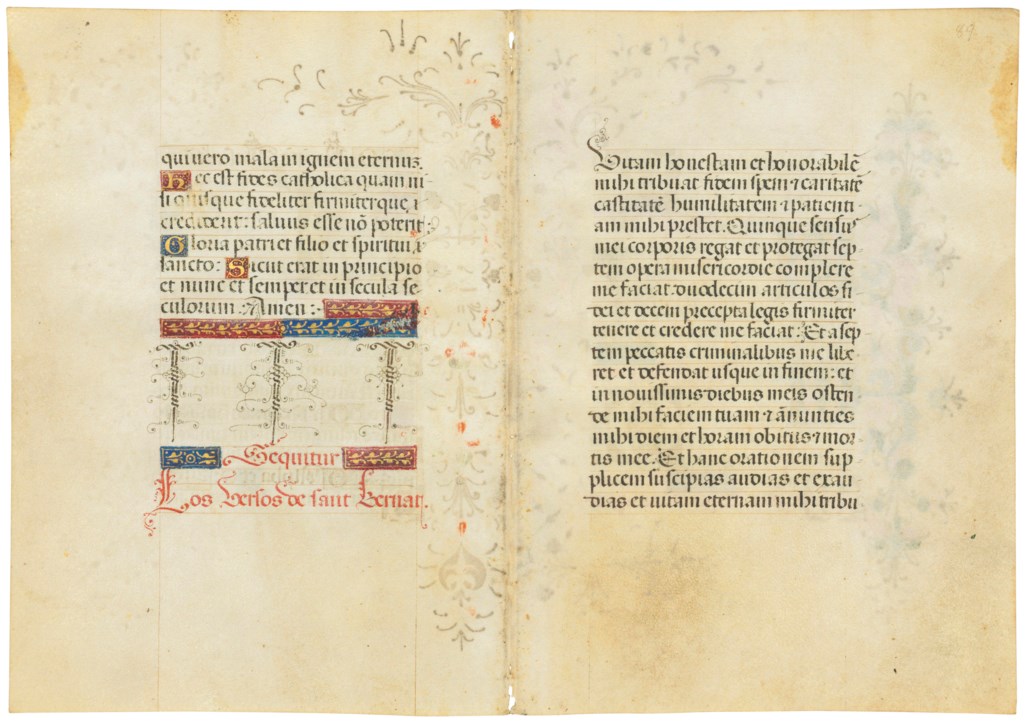 qui uero mala in ignem eternuz.
Hec est fides catholica quam ni-
si quisque fideliter firmiterque ⁊
crediderit: saluus esse nõ poterit:
Gloria patri et filio et spiritui ⁊
sancto: Sicut erat in principio
et nunc et semper et in secula se
culorum. Amen:-
Sequitur
Los Versos de sant Bernat.
89
Vitam honestam et honorabilẽ
mihi tribuat fidem spem ⁊ caritatẽ
castitatẽ humilitatem ⁊ patienti-
am mihi prestet. Quinque sensus
mei corporis regat et protegat sep
tem opera misericordie complere
me faciat. duodecim articulos fi-
dei et decem precepta legis firmiter
tenere et credere me faciat. Et a sep
tem peccatis criminalibus me libe-
ret et defendat usque in finem: et
in nouissimis diebus meis osten
de mihi faciem tuam ⁊ ãnunties
mihi diem et horam obitus ⁊ mor
tis mee. Et hanc orationem sup
plicem suscipias audias et exau-
dias et uitam eternam mihi tribu